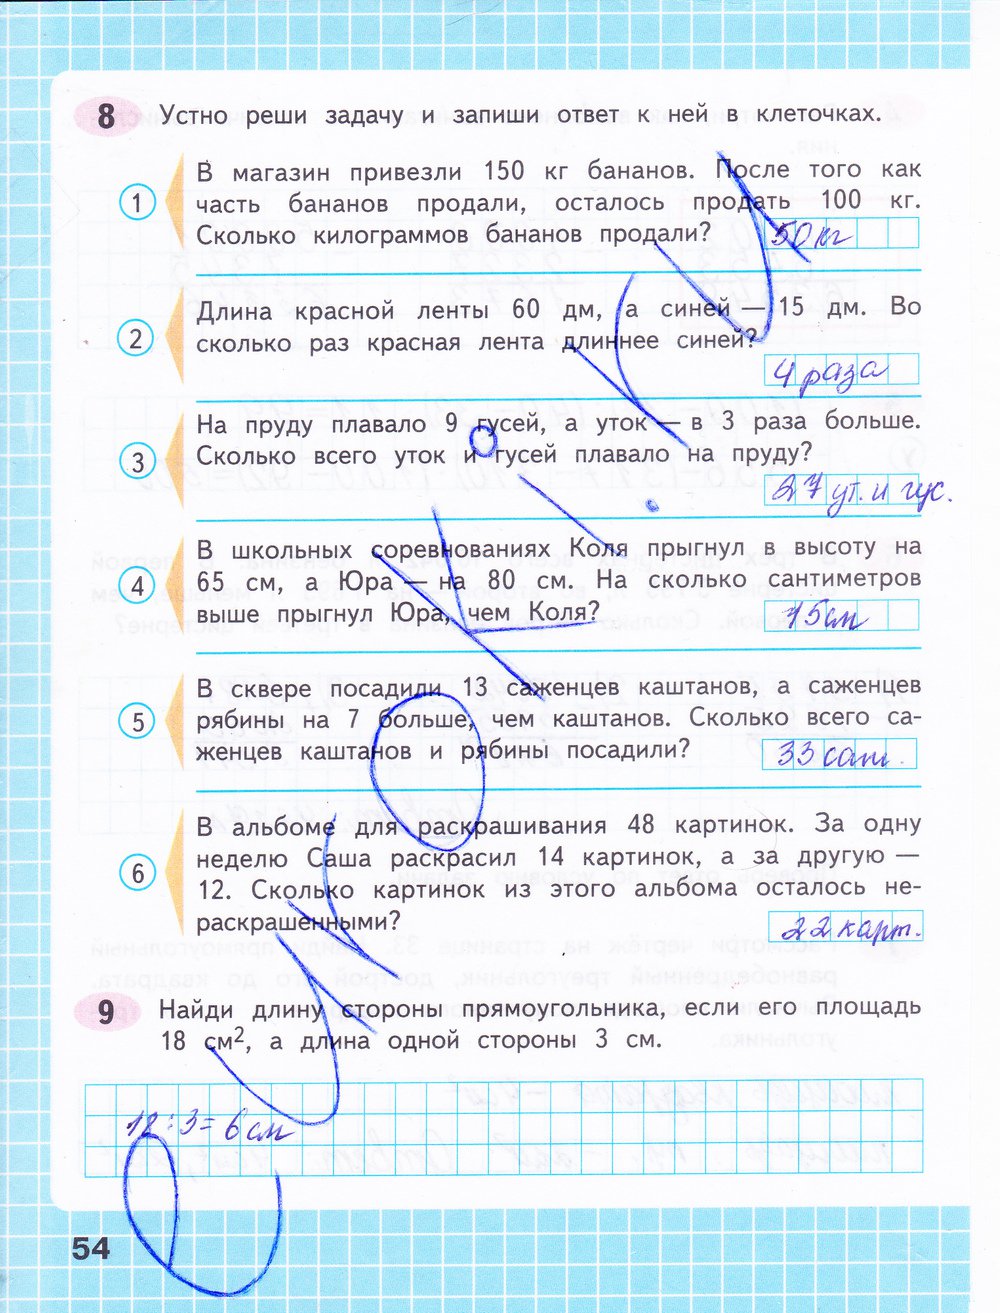 8 Устно реши задачу и запиши ответ к ней в клеточках.
1
В магазин привезли 150 кг бананов. После того как
часть бананов продали, осталось продать 100 кг.
Сколько килограммов бананов продали? 50 кг
2
Длина красной ленты 60 дм, а синей — 15 дм. Во
сколько раз красная лента длиннее синей?
4 раза
3
На пруду плавало 9 гусей, а уток — в 3 раза больше.
Сколько всего уток и гусей плавало на пруду?
27 ут. и гус.
4
В школьных соревнованиях Коля прыгнул в высоту на
65 см, а Юра — на 80 см. На сколько сантиметров
выше прыгнул Юра, чем Коля? 15 см
5
В сквере посадили 13 саженцев каштанов, а саженцев
рябины на 7 больше, чем каштанов. Сколько всего са-
женцев каштанов и рябины посадили? 33 саж.
6
В альбоме для раскрашивания 48 картинок. За одну
неделю Саша раскрасил 14 картинок, а за другую —
12. Сколько картинок из этого альбома осталось не-
раскрашенными? 22 карт.
9 Найди длину стороны прямоугольника, если его площадь
18 см², а длина одной стороны 3 см.
18 : 3 = 6 см
54